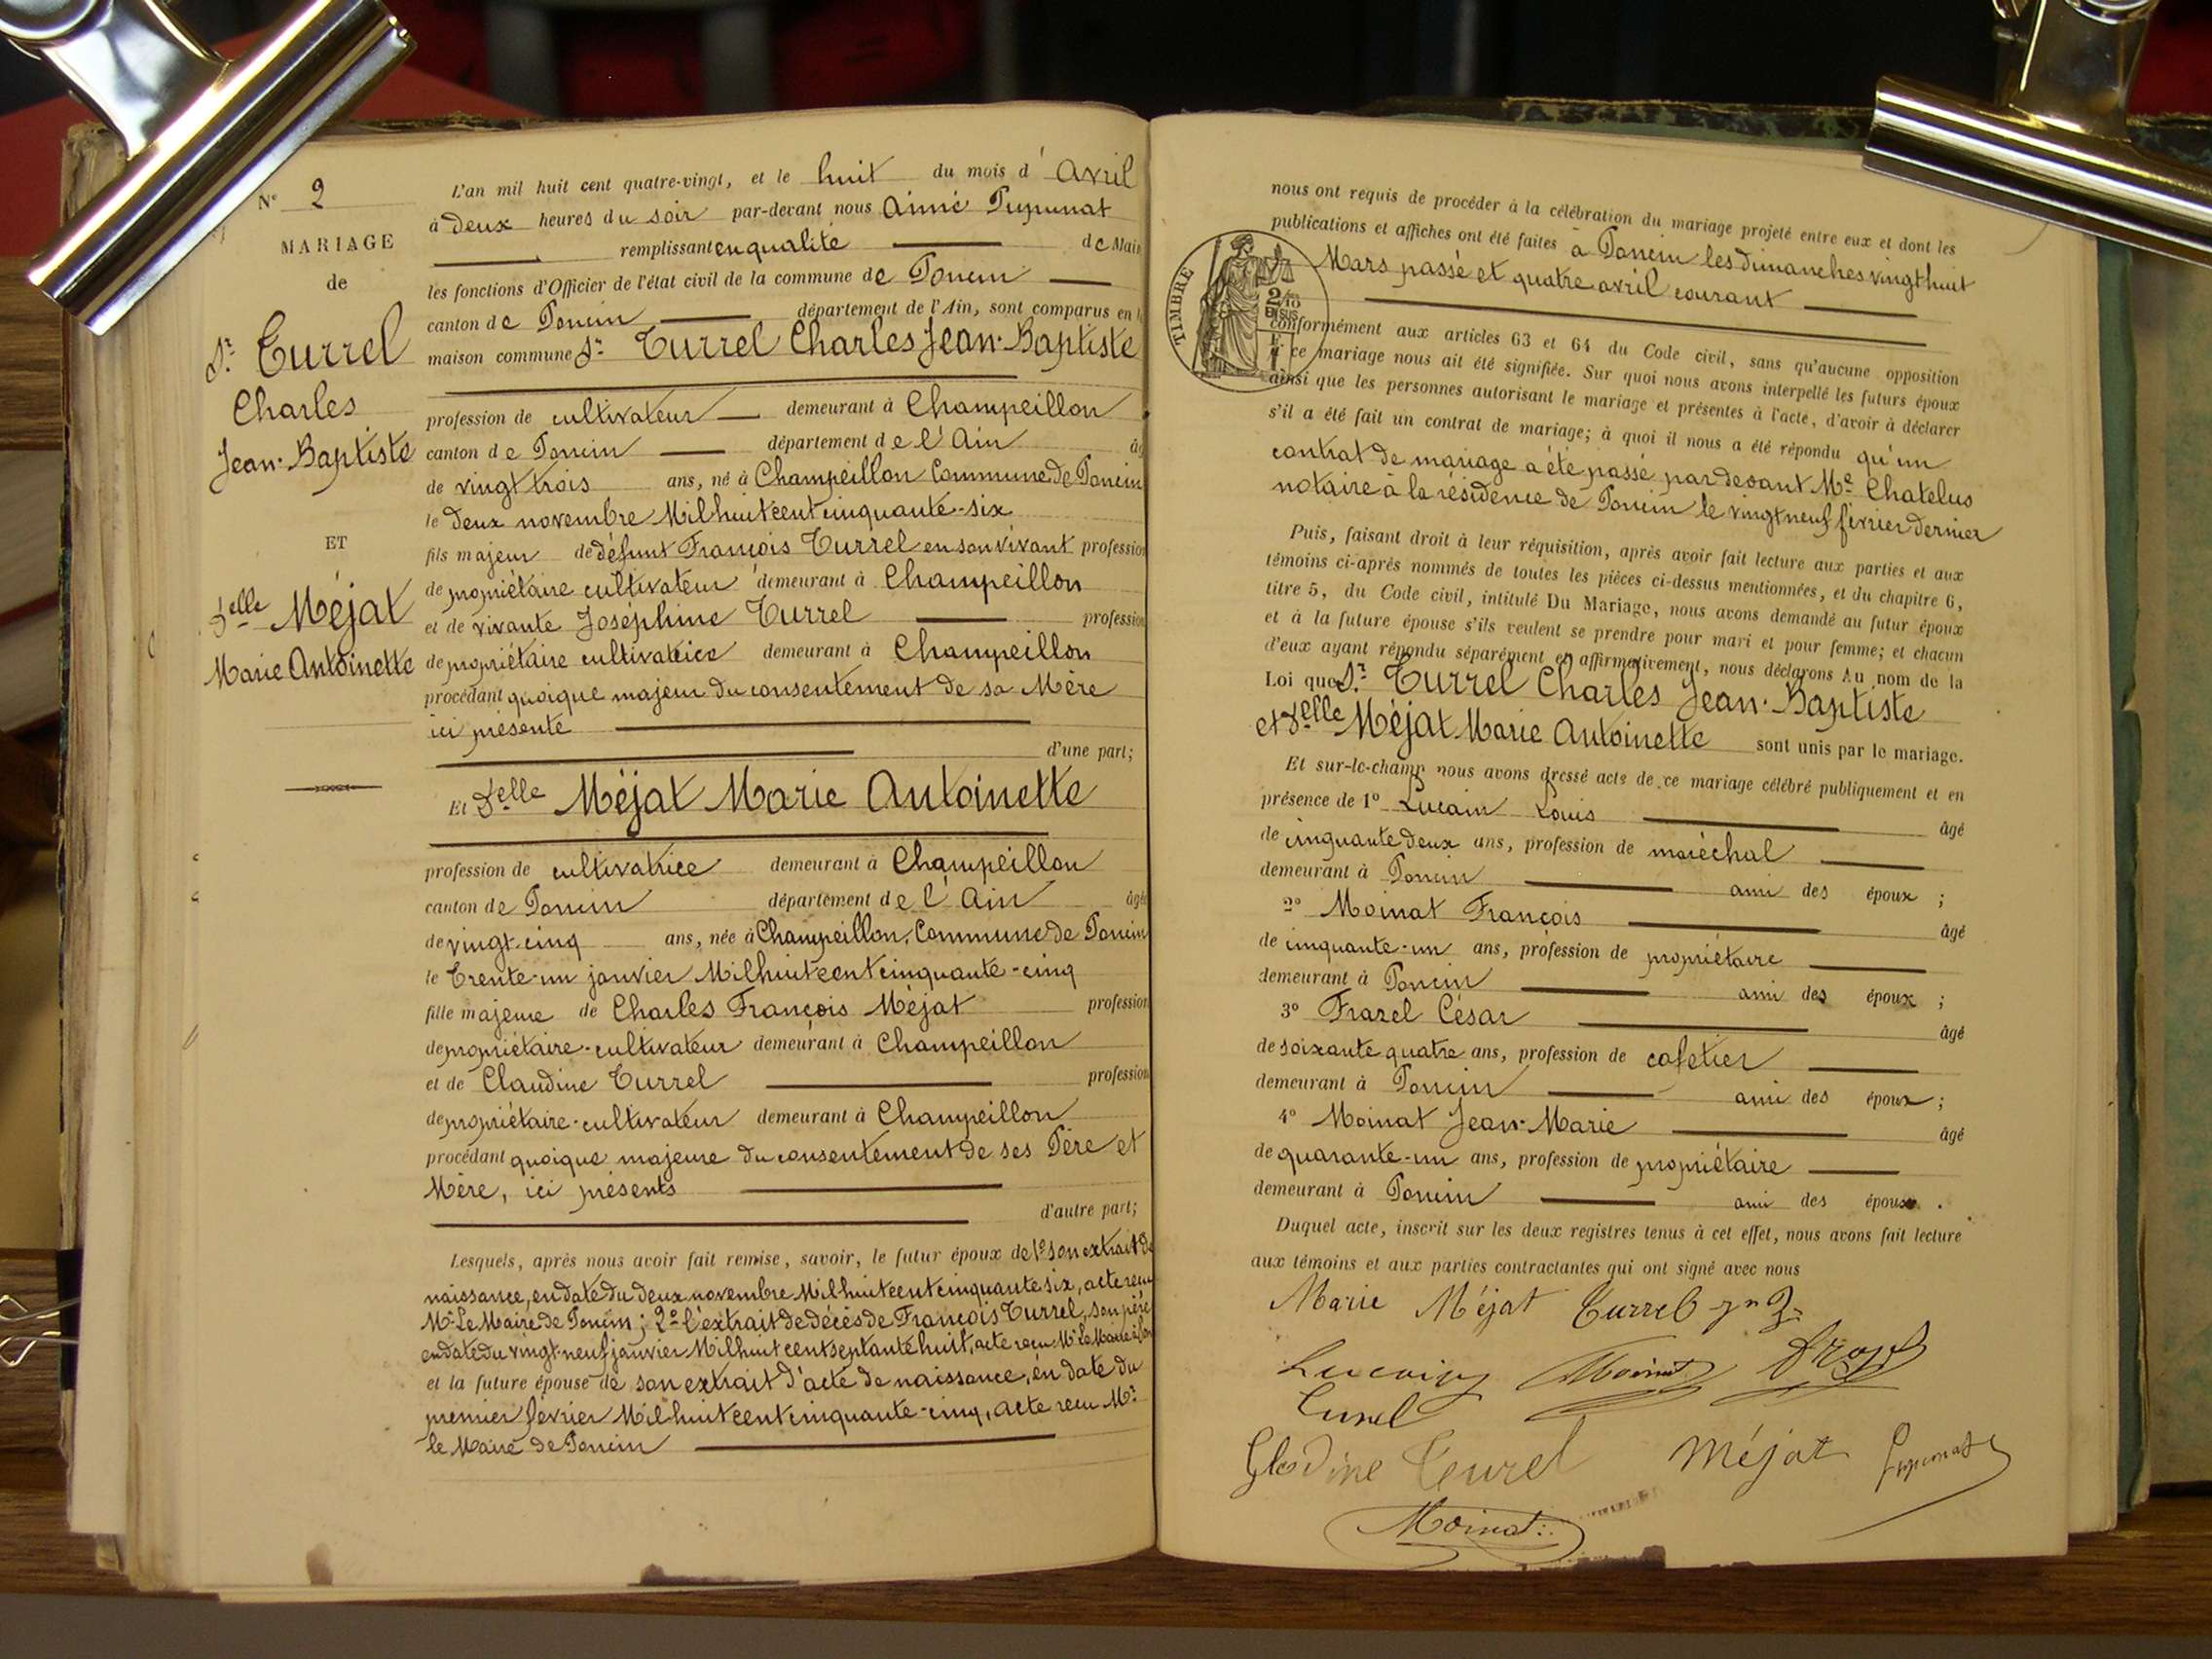 N° 2
MARIAGE
de
Sr. Turrel
Charles
Jean-Baptiste
ET
Delle Méjat
Marie Antoinette
L'an mil huit cent quatre-vingt, et le huit du mois d' Avril
à deux heures du soir par-devant nous Aimé Pupunat
remplissant en qualité de Mair
les fonctions d'Officier de l'état civil de la commune de Poncin
canton de Poncin département de l'Ain, sont comparus en
maison commune Sr. Turrel Charles Jean-Baptiste
profession de cultivateur demeurant à Champeillon
canton de Poncin département de l'Ain âg
de vingt trois ans, né à Champeillon Commune de Poncin
le deux novembre Mil huit cent cinquante-six
fils majeur de défunt François Turrel en son vivant profession
de propriétaire cultivateur demeurant à Champeillon
et de vivante Joséphine Turrel profession
de propriétaire cultivatrice demeurant à Champeillon
procédant quoique majeur du consentement de sa Mère
ici présente
d'une part;
Et Delle Méjat Marie Antoinette
profession de cultivatrice demeurant à Champeillon
canton de Poncin département de l'Ain âgé
de vingt-cinq ans, née à Champeillon, Commune de Poncin
le Trente-un janvier Mil huit cent cinquante-cinq
fille majeure de Charles François Méjat profession
de propriétaire-cultivateur demeurant à Champeillon
et de Claudine Turrel profession
de propriétaire-cultivateur demeurant à Champeillon
procédant quoique majeure du consentement de ses Père et
Mère, ici présents
d'autre part;
Lesquels, après nous avoir fait remise, savoir, le futur époux de 1° son extrait de
naissance, en date du deux novembre Mil huit cent cinquante six, acte reçu
Mr. Le Maire de Poncin; 2° l'extrait de décès de François Turrel, son père
en date du vingt-neuf janvier Mil huit cent septante huit, acte reçu Mr Le Maire
et la future épouse de son extrait d'acte de naissance, en date du
premier février Mil huit cent cinquante-cinq, acte reçu Mr.
le Maire de Poncin
nous ont requis de procéder à la célébration du mariage projeté entre eux et dont les
publications et affiches ont été faites à Poncin les dimanches vingt huit
Mars passé et quatre avril courant
TIMBRE
2/10 EN SUS
conformément aux articles 63 et 64 du Code civil, sans qu'aucune opposition
à ce mariage nous ait été signifiée. Sur quoi nous avons interpellé les futurs époux
ainsi que les personnes autorisant le mariage et présentes à l'acte, d'avoir à déclarer
s'il a été fait un contrat de mariage; à quoi il nous a été répondu qu'un
contrat de mariage a été passé par devant Me Chatelus
notaire à la résidence de Poncin le vingt neuf février dernier
Puis, faisant droit à leur réquisition, après avoir fait lecture aux parties et aux
témoins ci-après nommés de toutes les pièces ci-dessus mentionnées, et du chapitre 6,
titre 5, du Code civil, intitulé Du Mariage, nous avons demandé au futur époux
et à la future épouse s'ils veulent se prendre pour mari et pour femme; et chacun
d'eux ayant répondu séparément et affirmativement, nous déclarons Au nom de la
Loi que Sr. Turrel Charles Jean-Baptiste
et Delle Méjat Marie Antoinette sont unis par le mariage.
Et sur-le-champ nous avons dressé acte de ce mariage célébré publiquement et en
présence de 1° Lucain Louis âgé
de cinquante deux ans, profession de maréchal
demeurant à Poncin ami des époux ;
2° Moinat François âgé
de cinquante-un ans, profession de propriétaire
demeurant à Poncin ami des époux ;
3° Frazel César âgé
de soixante quatre ans, profession de cafetier
demeurant à Poncin ami des époux ;
4° Moinat Jean-Marie âgé
de quarante-un ans, profession de propriétaire
demeurant à Poncin ami des époux .
Duquel acte, inscrit sur les deux registres tenus à cet effet, nous avons fait lecture
aux témoins et aux parties contractantes qui ont signé avec nous
Marie Méjat Turrel
Lucain Moinat
Turel
Glodine Turel Méjat Pupunat
Moinat